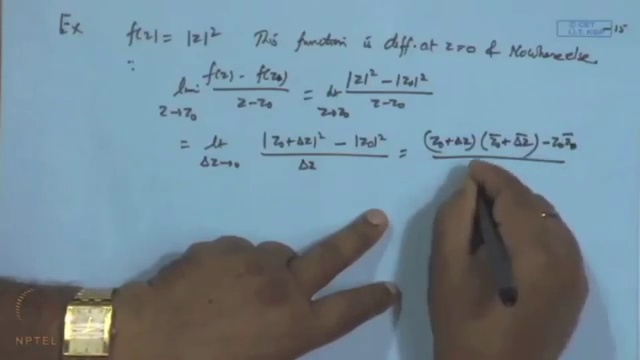 Ex f(z) = |z|² This function is diff. at z=0 & Nowhere else.
∵ lim z→z₀ (f(z) - f(z₀))/(z-z₀) = lt z→z₀ (|z|² - |z₀|²)/(z-z₀)
= lt Δz→0 (|z₀+Δz|² - |z₀|²)/Δz = (z₀+Δz)(z̄₀+Δ̄z̄) - z₀z̄₀
NPTEL